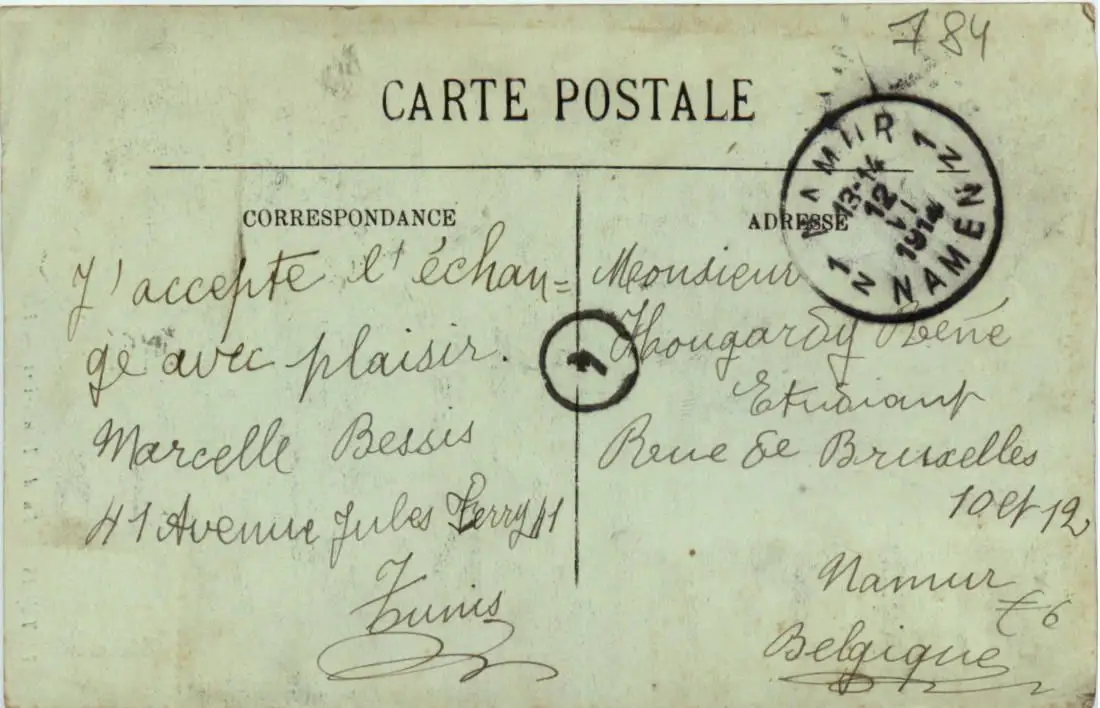 784
CARTE POSTALE
NAMUR 1
1N
13-14
12
VI
1914
N1
NAMEN
CORRESPONDANCE
J'accepte l'échan=
ge avec plaisir.
Marcelle Bessis
41 Avenue Jules Ferry 41
Tunis
1
ADRESSE
Monsieur
Hougardy René
Etudiant
Rue de Bruxelles
10 et 12
Namur
Belgique